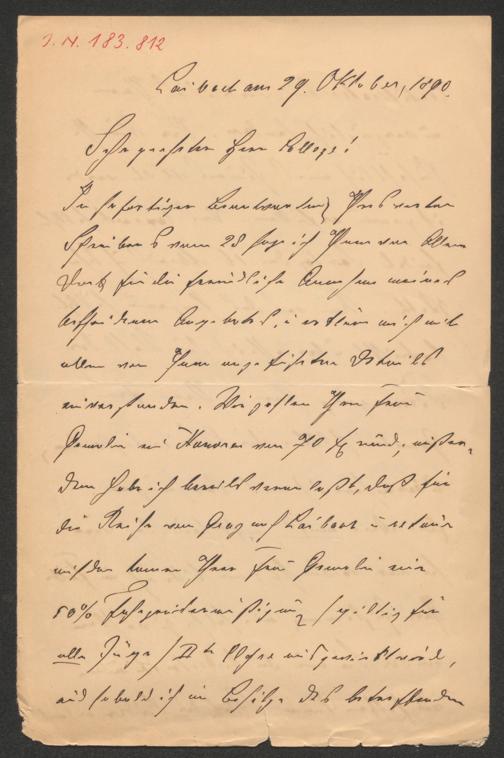 I. N. 183.812
Laibach am 29. Oktober, 1890.
Sehr geehrter Herr College!
In sofortiger Beantwortung Ihres werten
Schreibens vom 28 sage ich Ihnen vor Allem
Dank für die freundliche Annahme meines
bescheidenen Angebotes, u. erkläre mich mit
allen von Ihnen angeführten Details
einverstanden. Wir zahlen Ihrer Frau
Gemalin ein Honorar von 70 fl rund; außer-
dem habe ich bereits veranlaßt, daß für
die Reise von Prag nach Laibach u. retour
auf den Namen Ihrer Frau Gemalin eine
50% Fahrpreisermäßigung /giltig für
alle Züge / II ter Classe ausgewirkt wird,
und sobald ich im Besitze des betreffenden